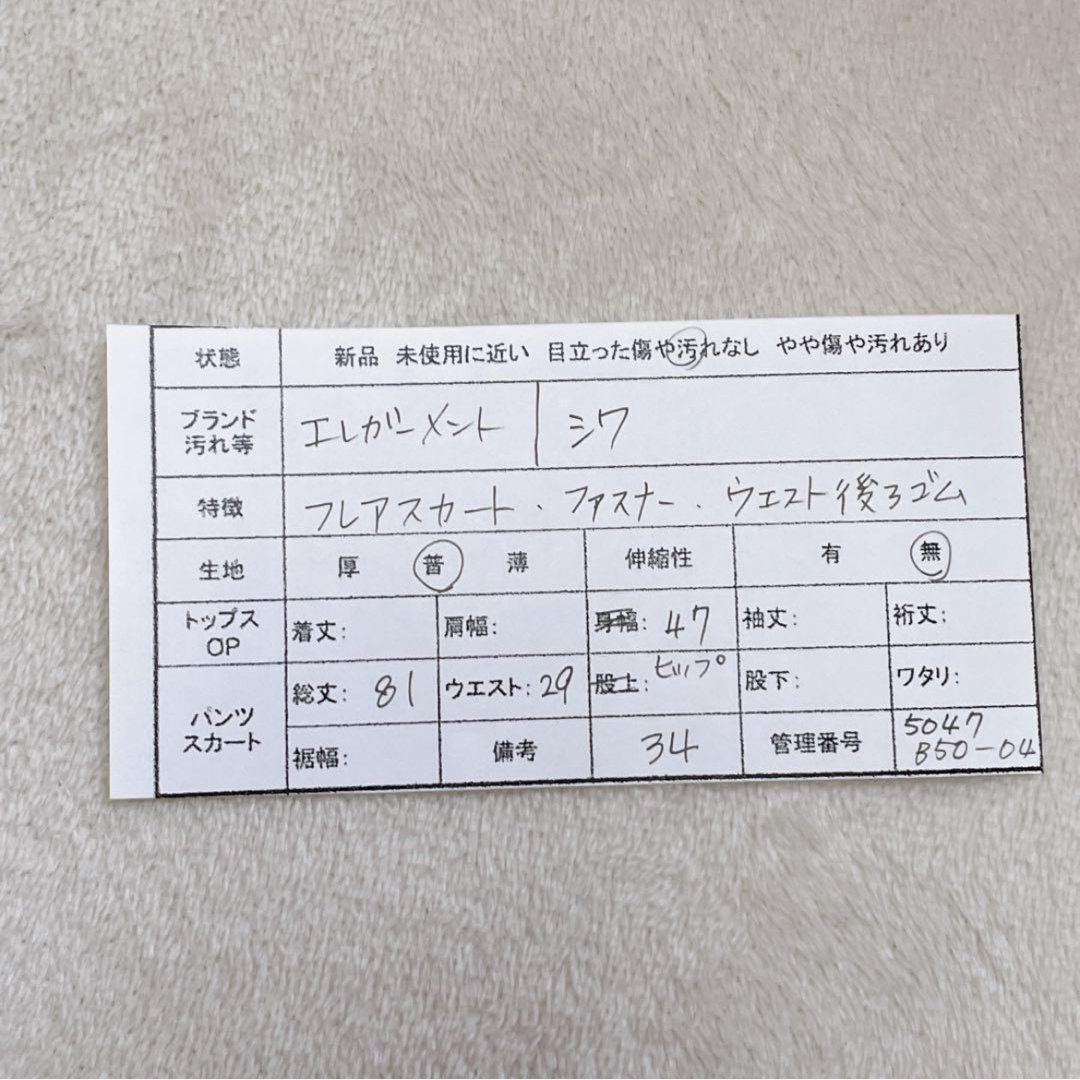 状態 新品 未使用に近い 目立った傷や汚れなし やや傷や汚れあり
ブランド 汚れ等 エレガーメント | シワ
特徴 フレアスカート . ファスナー . ウエスト後ろゴム
生地 厚 普 薄 伸縮性 有 無
トップス OP 着丈: 肩幅: 身幅: 47 袖丈: 裄丈:
パンツ スカート 総丈: 81 ウエスト: 29 股上: ヒップ 股下: ワタリ:
裾幅: 備考 34 管理番号 5047 B50-04